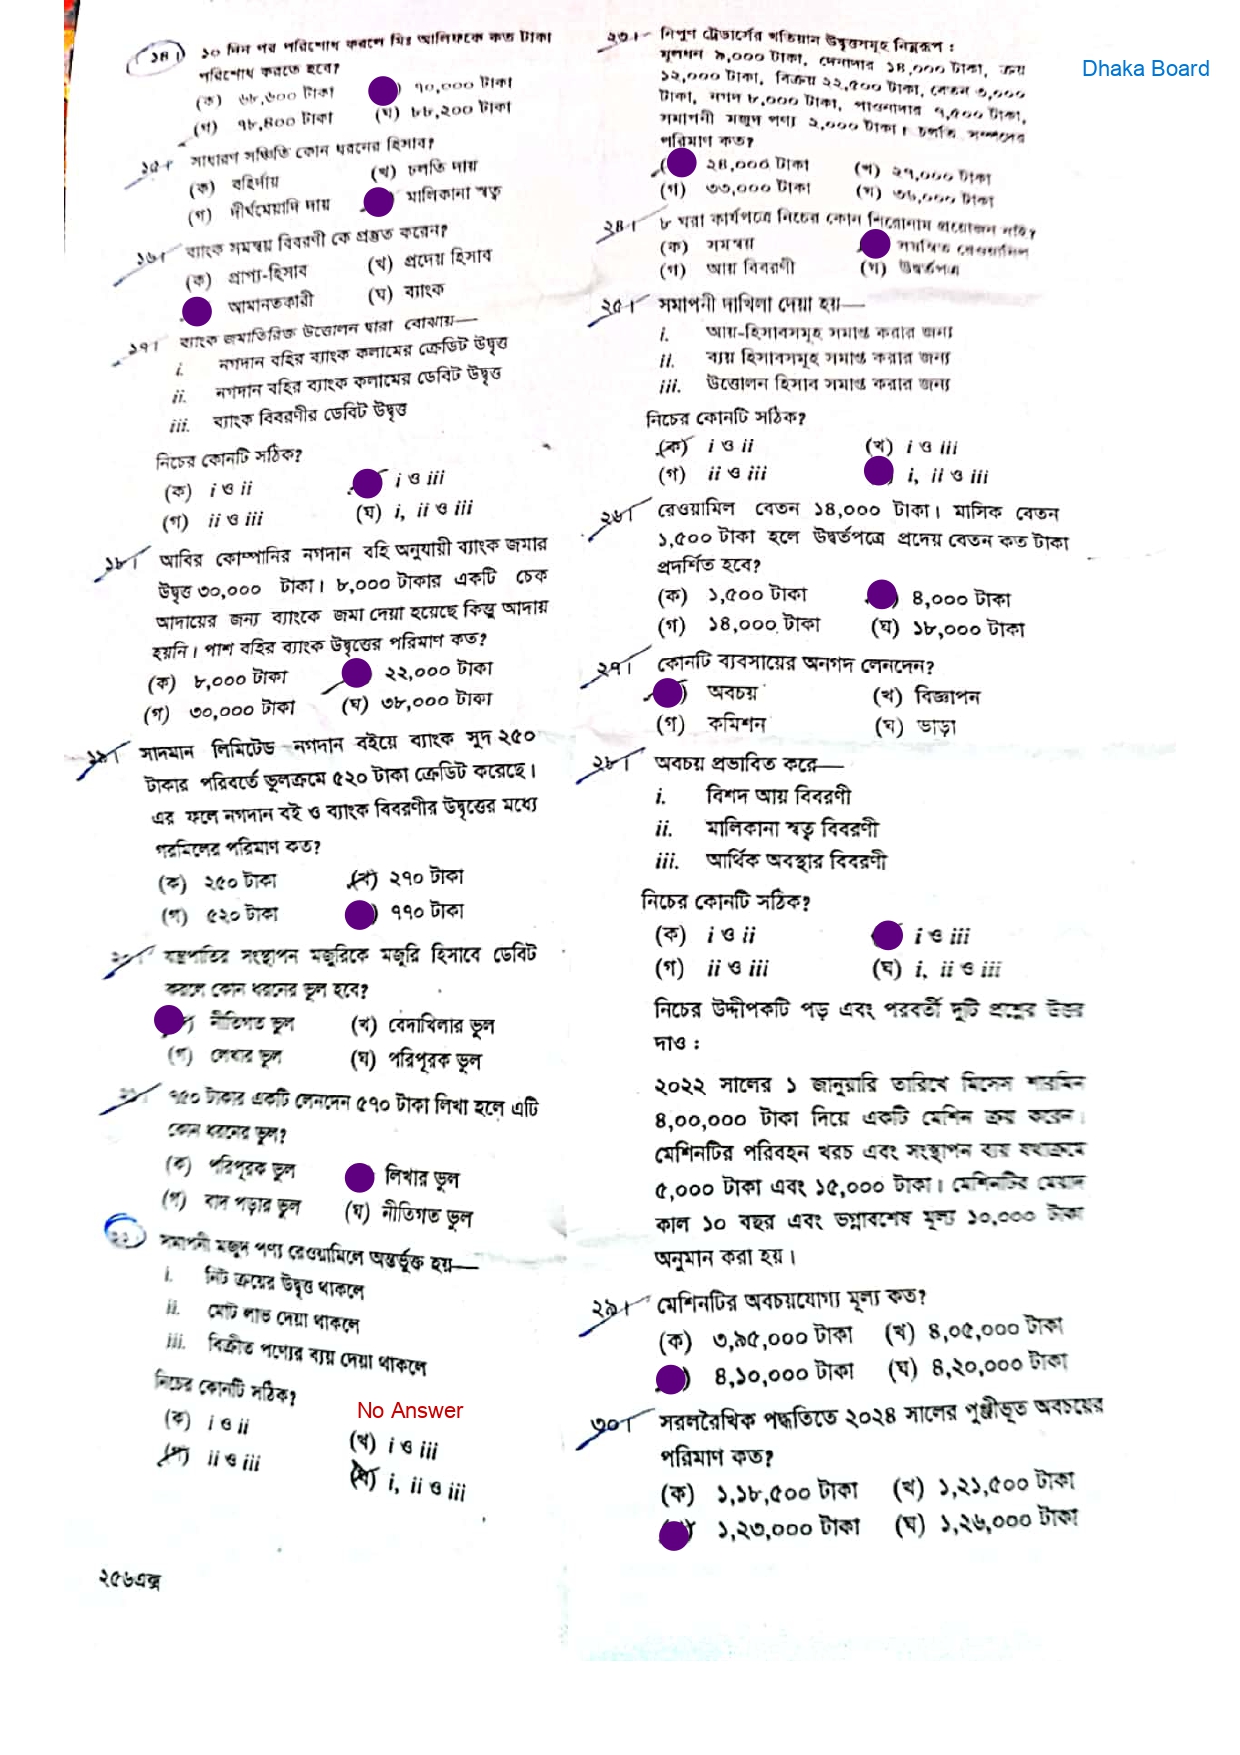 Dhaka Board
১৪। ১০ দিন পর পরিশোধ করলে মিঃ আলিফকে কত টাকা
পরিশোধ করতে হবে?
(ক) ৬৮,৬০০ টাকা ৭০,০০০ টাকা
(গ) ৭৮,৪০০ টাকা (ঘ) ৮৮,২০০ টাকা
১৫। সাধারণ সঞ্চিতি কোন ধরনের হিসাব?
(ক) বহির্দায় (খ) চলতি দায়
(গ) দীর্ঘমেয়াদি দায় মালিকানা স্বত্ব
১৬। ব্যাংক সমন্বয় বিবরণী কে প্রস্তুত করেন?
(ক) প্রাপ্য-হিসাব (খ) প্রদেয় হিসাব
আমানতকারী (ঘ) ব্যাংক
১৭। ব্যাংক জমাতিরিক্ত উত্তোলন দ্বারা বোঝায়—
i. নগদান বহির ব্যাংক কলামের ক্রেডিট উদ্বৃত্ত
ii. নগদান বহির ব্যাংক কলামের ডেবিট উদ্বৃত্ত
iii. ব্যাংক বিবরণীর ডেবিট উদ্বৃত্ত
নিচের কোনটি সঠিক?
(ক) i ও ii i ও iii
(গ) ii ও iii (ঘ) i, ii ও iii
১৮। আবির কোম্পানির নগদান বহি অনুযায়ী ব্যাংক জমার
উদ্বৃত্ত ৩০,০০০ টাকা। ৮,০০০ টাকার একটি চেক
আদায়ের জন্য ব্যাংকে জমা দেয়া হয়েছে কিন্তু আদায়
হয়নি। পাশ বহির ব্যাংক উদ্বৃত্তের পরিমাণ কত?
(ক) ৮,০০০ টাকা ২২,০০০ টাকা
(গ) ৩০,০০০ টাকা (ঘ) ৩৮,০০০ টাকা
১৯। সাদমান লিমিটেড নগদান বইয়ে ব্যাংক সুদ ২৫০
টাকার পরিবর্তে ভুলক্রমে ৫২০ টাকা ক্রেডিট করেছে।
এর ফলে নগদান বই ও ব্যাংক বিবরণীর উদ্বৃত্তের মধ্যে
গরমিলের পরিমাণ কত?
(ক) ২৫০ টাকা (খ) ২৭০ টাকা
(গ) ৫২০ টাকা ) ৭৭০ টাকা
২০। যন্ত্রপাতির সংস্থাপন মজুরিকে মজুরি হিসাবে ডেবিট
করলে কোন ধরনের ভুল হবে?
নীতিগত ভুল (খ) বেদাখিলার ভুল
(গ) লেখার ভুল (ঘ) পরিপূরক ভুল
২১। ৭৫০ টাকার একটি লেনদেন ৫৭০ টাকা লিখা হলে এটি
কোন ধরনের ভুল?
(ক) পরিপূরক ভুল লিখার ভুল
(গ) বাদ পড়ার ভুল (ঘ) নীতিগত ভুল
২২। সমাপনী মজুদ পণ্য রেওয়ামিলে অন্তর্ভুক্ত হয়—
i. নিট ক্রয়ের উদ্বৃত্ত থাকলে
ii. মোট লাভ দেয়া থাকলে
iii. বিক্রীত পণ্যের ব্যয় দেয়া থাকলে
নিচের কোনটি সঠিক?
No Answer
(ক) i ও ii (খ) i ও iii
(গ) ii ও iii (ঘ) i, ii ও iii
২৫৬এক্স
২৩। নিপুণ ট্রেডার্সের খতিয়ান উদ্বৃত্তসমূহ নিম্নরূপ :
মূলধন ৯,০০০ টাকা, দেনাদার ১৪,০০০ টাকা, ক্রয়
১২,০০০ টাকা, বিক্রয় ২২,৫০০ টাকা, বেতন ৩,০০০
টাকা, নগদ ৮,০০০ টাকা, পাওনাদার ৭,৫০০ টাকা,
সমাপনী মজুদ পণ্য ২,০০০ টাকা। চলতি সম্পদের
পরিমাণ কত?
২৪,০০০ টাকা (খ) ২৭,০০০ টাকা
(গ) ৩৩,০০০ টাকা (ঘ) ৩৬,০০০ টাকা
২৪। ৮ ঘরা কার্যপত্রে নিচের কোন শিরোনাম প্রয়োজন নাই?
(ক) সমন্বয় সমন্বিত রেওয়ামিল
(গ) আয় বিবরণী (ঘ) উদ্বর্তপত্র
২৫। সমাপনী দাখিলা দেয়া হয়—
i. আয়-হিসাবসমূহ সমাপ্ত করার জন্য
ii. ব্যয় হিসাবসমূহ সমাপ্ত করার জন্য
iii. উত্তোলন হিসাব সমাপ্ত করার জন্য
নিচের কোনটি সঠিক?
(ক) i ও ii (খ) i ও iii
(গ) ii ও iii i, ii ও iii
২৬। রেওয়ামিল বেতন ১৪,০০০ টাকা। মাসিক বেতন
১,৫০০ টাকা হলে উদ্বর্তপত্রে প্রদেয় বেতন কত টাকা
প্রদর্শিত হবে?
(ক) ১,৫০০ টাকা ) ৪,০০০ টাকা
(গ) ১৪,০০০ টাকা (ঘ) ১৮,০০০ টাকা
২৭। কোনটি ব্যবসায়ের অনগদ লেনদেন?
) অবচয় (খ) বিজ্ঞাপন
(গ) কমিশন (ঘ) ভাড়া
২৮। অবচয় প্রভাবিত করে—
i. বিশদ আয় বিবরণী
ii. মালিকানা স্বত্ব বিবরণী
iii. আর্থিক অবস্থার বিবরণী
নিচের কোনটি সঠিক?
(ক) i ও ii i ও iii
(গ) ii ও iii (ঘ) i, ii ও iii
নিচের উদ্দীপকটি পড় এবং পরবর্তী দুটি প্রশ্নের উত্তর
দাও :
২০২২ সালের ১ জানুয়ারি তারিখে মিসেস শারমিন
৪,০০,০০০ টাকা দিয়ে একটি মেশিন ক্রয় করেন।
মেশিনটির পরিবহন খরচ এবং সংস্থাপন ব্যয় যথাক্রমে
৫,০০০ টাকা এবং ১৫,০০০ টাকা। মেশিনটির মেয়াদ
কাল ১০ বছর এবং ভগ্নাবশেষ মূল্য ১০,০০০ টাকা
অনুমান করা হয়।
২৯। মেশিনটির অবচয়যোগ্য মূল্য কত?
(ক) ৩,৯৫,০০০ টাকা (খ) ৪,০৫,০০০ টাকা
) ৪,১০,০০০ টাকা (ঘ) ৪,২০,০০০ টাকা
৩০। সরলরৈখিক পদ্ধতিতে ২০২৪ সালের পুঞ্জীভূত অবচয়ের
পরিমাণ কত?
(ক) ১,১৮,৫০০ টাকা (খ) ১,২১,৫০০ টাকা
১,২৩,০০০ টাকা (ঘ) ১,২৬,০০০ টাকা